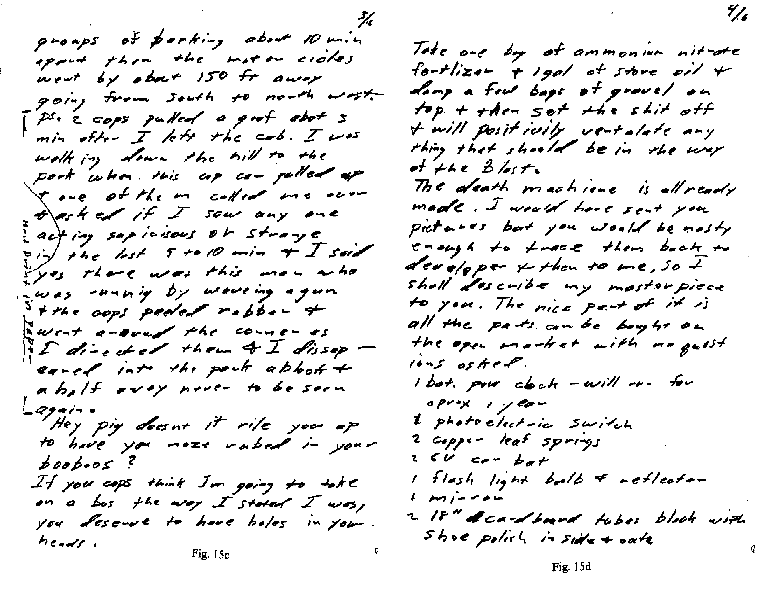 3/6
groups of parking about 10 min
apart then the motor cicles
went by about 150 ft away
going from south to north west.
ps. 2 cops pulled a goof abot 3
min after I left the cab. I was
walking down the hill to the
park when this cop car pulled up
+ one of them called me over
+ asked if I saw any one
acting supicisous or strange
in the last 5 to 10 min + I said
yes there was this man who
was runnig by waveing a gun
+ the cops peeled rubber +
went around the corner as
I directed them + I dissap-
eared into the park a block +
a half away never to be seen
again.
Must Print in Paper
Hey pig doesnt it rile you up
to have you noze rubed in your
booboos?
If you cops think Im going to take
on a bus the way I stated I was,
you deserve to have holes in your
heads.
Fig. 15c
4/6
Take one bag of ammonium nitrate
fertlizer + 1 gal of stove oil +
dump a few bags of gravel on
top + then set the shit off
+ will positivily ventalate any
thing that should be in the way
of the Blast.
The death machiene is allready
made. I would have sent you
pictures but you would be nasty
enough to trace them back to
developer + then to me, so I
shall describe my masterpiece
to you. The nice part of it is
all the parts can be bought on
the open market with no quest
ions asked.
1 bat. pow clock - will run for
aprox 1 year
1 photoelectric switch
2 copper leaf springs
2 6V car bat
1 flash light bulb + reflector
1 mirror
2 18" cardboard tubes black with
shoe polish in side + oute
Fig. 15d